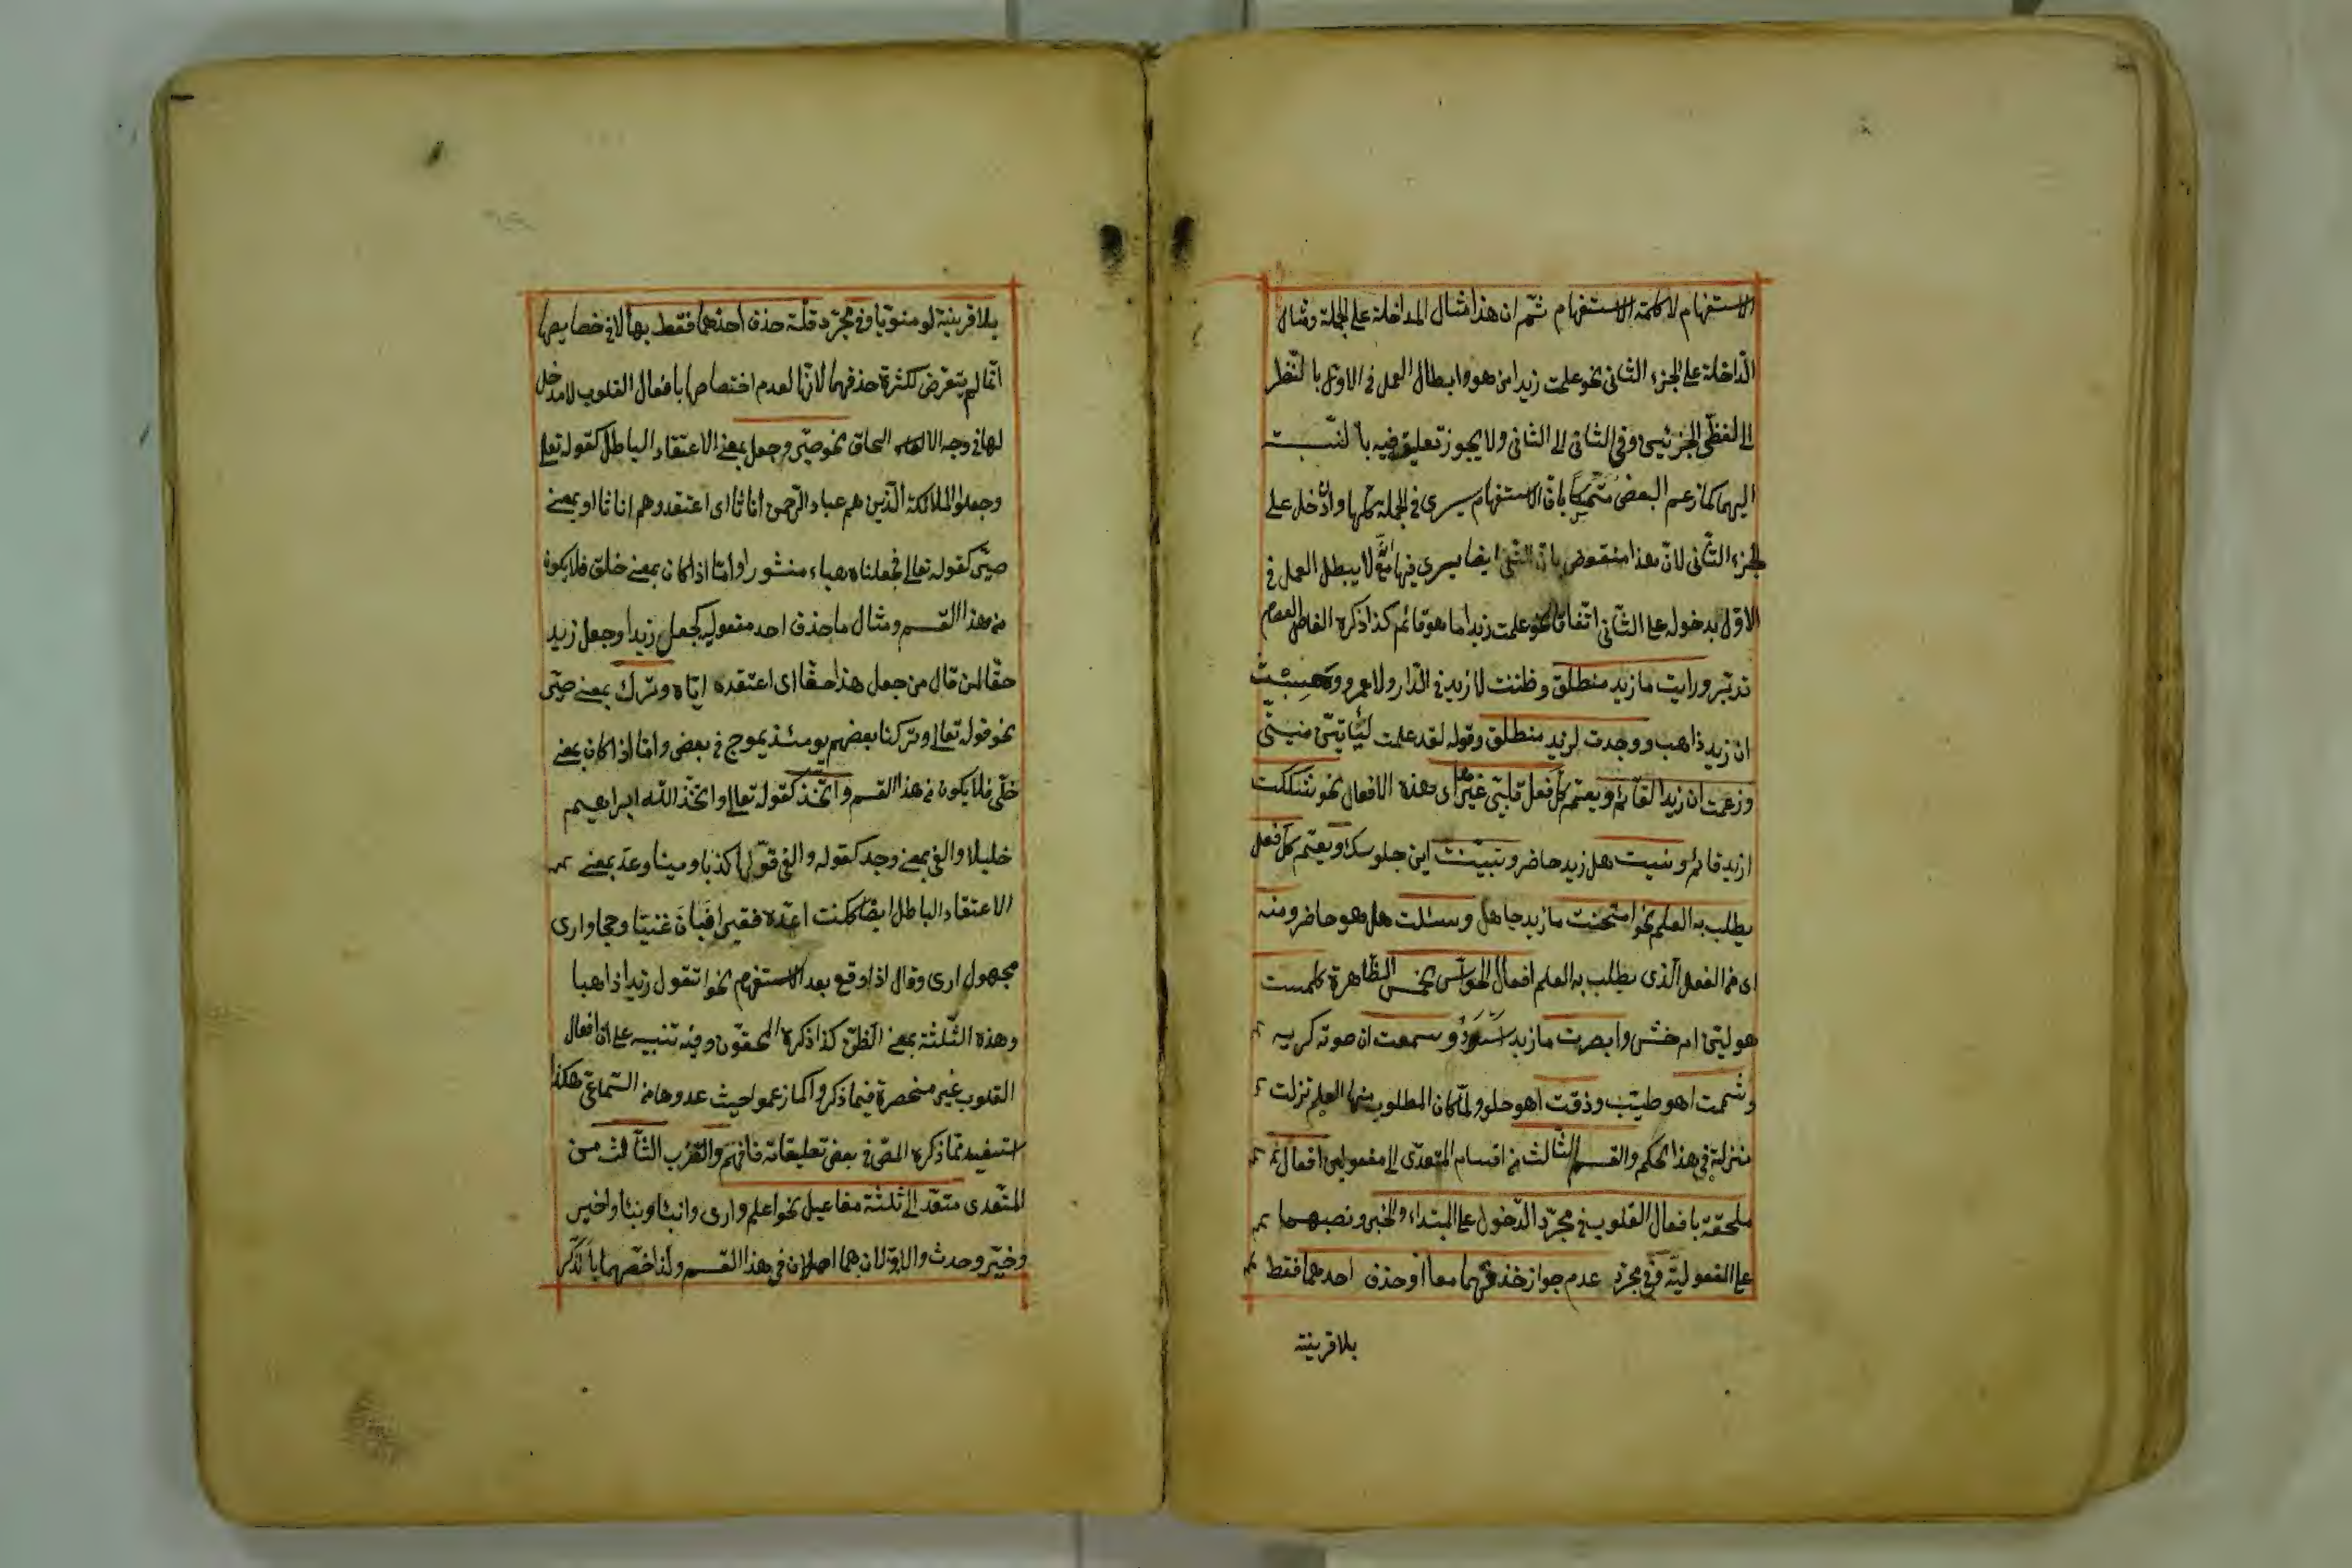 الاستفهام لا كلمة الاستفهام ثمّ ان هذا مثال الداخلة على الجملة ومثال
الدّاخلة على الجزء الثانى نحو علمت زيدا من هو وابطال العمل فى الاوّل بالنّظر
الى لفظى الجزئين وفى الثانى الى الثانى ولا يجوز تعليق فيه بالنسبة
اليهما كما زعم البعض متمسّكا بانّ الاستفهام يسرى فى الجملة كلّها وان دخل على
الجزء الثّانى لانّ هذا منقوض بانّ النّفى ايضا يسرى فيها مع انّه لا يبطل العمل فى
الاوّل بدخوله على الثّانى اتّفاقا نحو علمت زيدا ما هو قائم كذا ذكره الفاضل العصام
تدبّر ورايت ما زيد منطلق وظننت لا زيد فى الدّار ولا عمرو وحسبت
ان زيد ذاهب ووجدت لزيد منطلق وقوله لقد علمت لتاتينّ منيّتى
وزعمت ان زيدا لقائم ويعتم كل فعل قلبىّ غيرها اى هذه الافعال نحو شككت
ازيد قائم ونسيت هل زيد حاضر وتبيّنت اين جلوسك ويعتم كل فعل
يطلب به العلم نحو امتحنت ما زيد جاهل وسئلت هل هو حاضر ومنه
اى من الفعل الّذى يطلب به العلم افعال الحواسّ الخمس الظّاهرة كلمست
هو ليّن ام خشن وابصرت ما زيد اسود وسمعت ان صوته كريه
وشممت اهو طيّب وذقت اهو حلو ولمّا كان المطلوب منها العلم نزلت
منزلة فى هذا الحكم والقسم الثّالث من اقسام المتعدّى الى مفعولين افعال
ملحقة بافعال القلوب فى مجرّد الدّخول على المبتداء والخبر ونصبهما
على المفعوليّة وفى مجرّد عدم جواز حذفهما معا او حذف احدهما فقط
بلا قرينة
بلا قرينة لو منويّا وفى مجرّد قلّة حذف احدهما فقط بها لا فى خصايصها
انّما لم يتعرّض لكثرة حذفهما لانّها لعدم اختصاصها بافعال القلوب لا مدخل
لها فى وجه الالحاق نحو صيّر وجعل بمعنى الاعتقاد الباطل كقوله تعلى
وجعلوا الملائكة الّذين هم عباد الرّحمن اناثا اى اعتقدوهم اناثا او بمعنى
صيّر كقوله تعالى فجعلناه هباء منثورا وامّا اذا كان بمعنى خلق فلا يكون
من هذا القسم ومثال ما حذف احد مفعوليه كجعل زيدا وجعل زيد
حقّا لمن قال من جعل هذا حقّا اى اعتقده ايّاه وترك بمعنى صيّر
نحو قوله تعالى وتركنا بعضهم يومئذ يموج فى بعض وامّا اذا كان بمعنى
خلّى فلا يكون من هذا القسم واتّخذ كقوله تعالى واتّخذ الله ابراهيم
خليلا والفى بمعنى وجد كقوله والفى قولها كذبا ومينا وعدّ بمعنى
الاعتقاد الباطل ايضا ككنت اعدّه فقيرا فبان غنيّا وحجا وارى
مجهول ارى وقال اذا وقع بعد الاستفهام نحو اتقول زيدا ذاهبا
وهذه الثّلثة بمعنى الظّنّ كذا ذكره المحقّقون وفيه تنبيه على ان افعال
القلوب غير منحصرة فيما ذكر كما زعموا حيث عدوها من السّماعى هكذا
استفيد ممّا ذكره المص فى بعض تعليقاته فافهم والضّرب الثّالث من
المتعدى متعدّ الى ثلثة مفاعيل نحو اعلم وارى وانبأ ونبّأ واخبر
وخبّر وحدث والاوّلان هما اصلان فى هذا القسم ولذا خصّهما بالذّكر